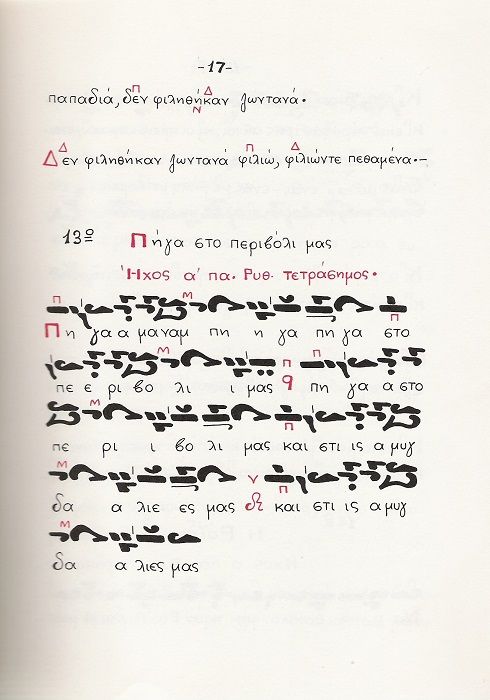 -17-
παπαδιά, δεν φιληθήκαν ζωντανά.
Δεν φιληθήκαν ζωντανά φιλιώ, φιλιώντε πεθαμένα.-
13º Πήγα στο περιβόλι μας
Ήχος α' πα. Ρυθ. τετράσημος.
Πη γα α μαναμ πη η γα πη γα στο
πε ε ρι βο λι ι μας πη γα α στο
πε ρι ι βο λι μας και στι ις α μυγ
δα α λιε ες μας και στι ις α μυγ
δα α λιες μας